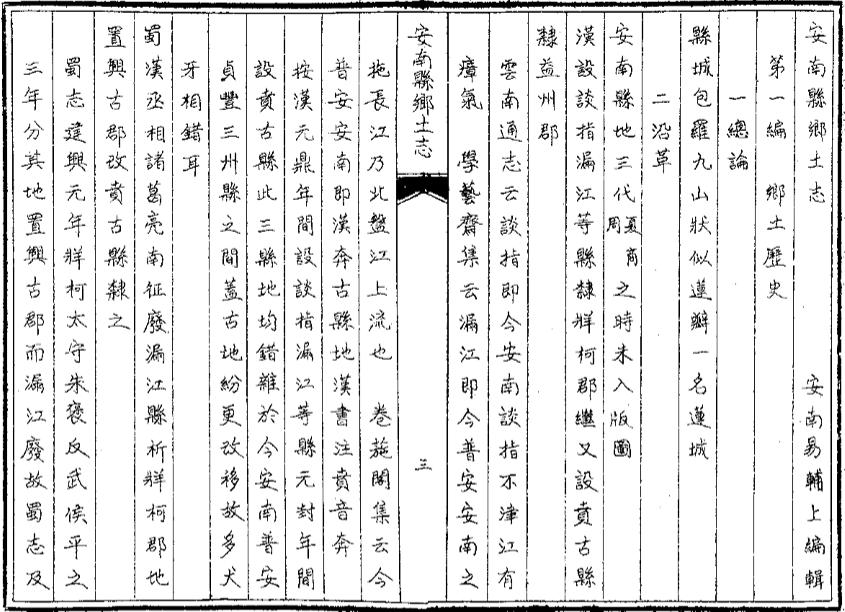 安南縣鄉土志　安南易輔上編輯
第一編　鄉土歷史
一總論
縣城包羅九山狀似蓮瓣一名蓮城
二沿革
安南縣地三代夏商周之時未入版圖
漢設談指漏江等縣隸牂柯郡繼又設賁古縣
隸益州郡
雲南通志云談指即今安南談指不津江有
瘴氣　學藝齋集云漏江即今普安安南之
安南縣鄉土志　三
拖長江乃北盤江上流也　卷葹閣集云今
普安安南即漢奔古縣地漢書注賁音奔
按漢元鼎年間設談指漏江等縣元封年間
設賁古縣此三縣地均錯雜於今安南普安
貞豐三州縣之間蓋古地紛更改移故多犬
牙相錯耳
蜀漢丞相諸葛亮南征廢漏江縣析牂柯郡地
置興古郡改賁古縣隸之
蜀志建興元年牂柯太守朱褒反武侯平之
三年分其地置興古郡而漏江廢故蜀志及